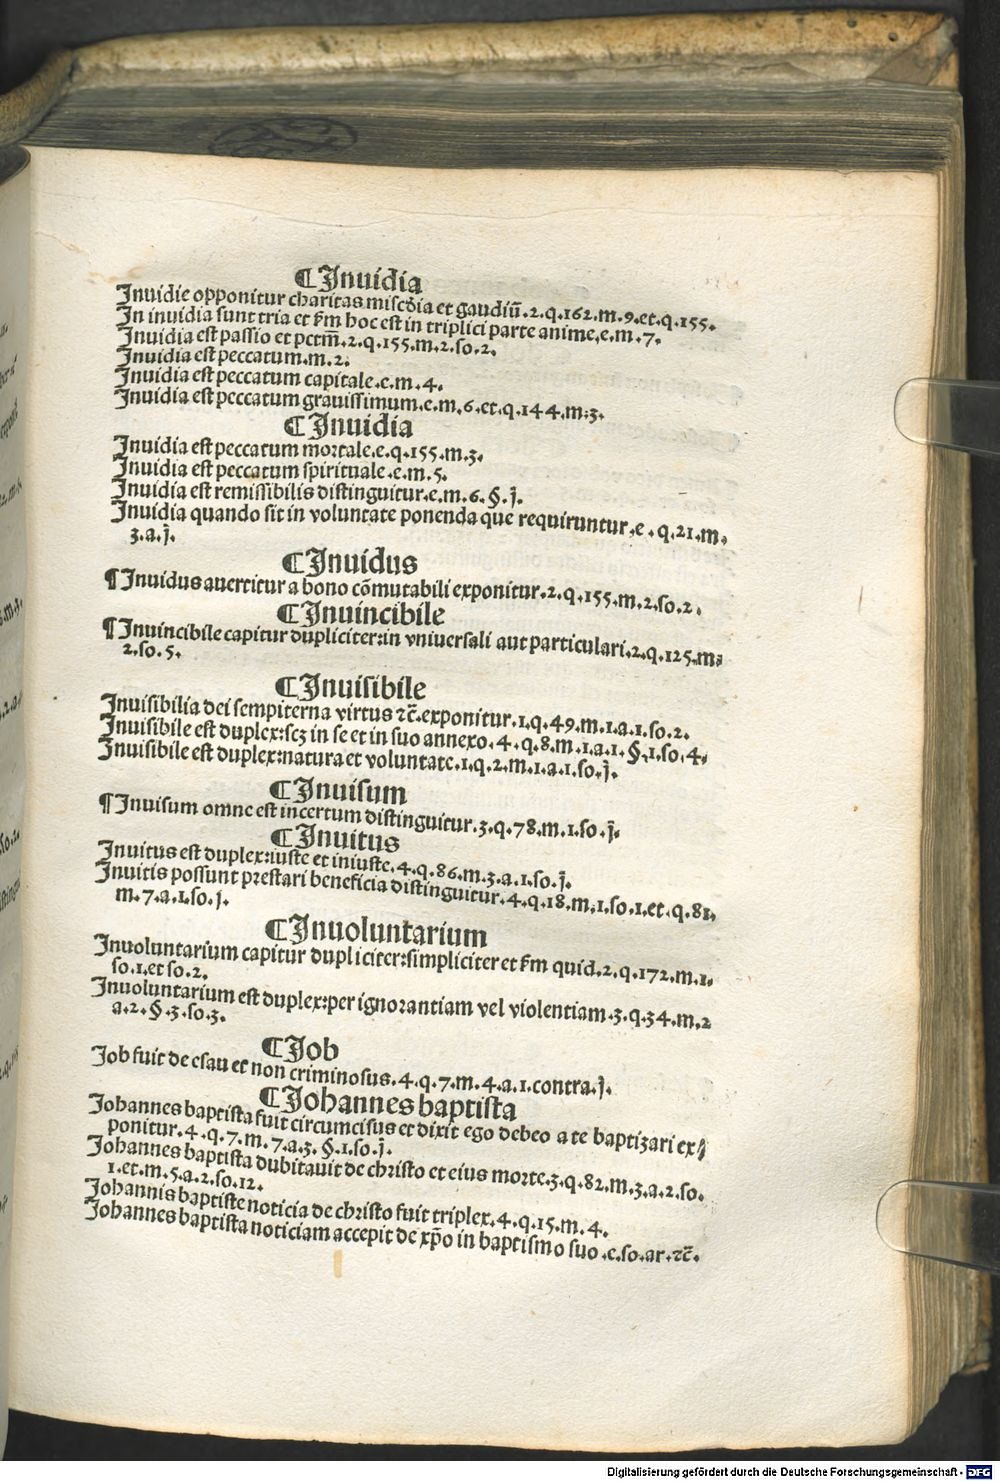 ¶Inuidia
Inuidie opponitur charitas miscd̄ia et gaudiū.2.q.162.m.9.et.q.155.
In inuidia sunt tria et ẜm hoc est in triplici parte anime.e.m.7.
Inuidia est passio et pctm̄.2.q.155.m.2.so.2.
Inuidia est peccatum.m.2.
Inuidia est peccatum capitale.e.m.4.
Inuidia est peccatum grauissimum.e.m.6.et.q.144.m.3.
¶Inuidia
Inuidia est peccatum mortale.e.q.155.m.3.
Inuidia est peccatum spirituale.e.m.5.
Inuidia est remissibilis distinguitur.e.m.6.§.j.
Inuidia quando sit in voluntate ponenda que requiruntur.e.q.21.m.
3.a.j.
¶Inuidus
¶Inuidus auertitur a bono cōmutabili exponitur.2.q.155.m.2.so.2.
¶Inuincibile
¶Inuincibile capitur dupliciter:in vniuersali aut particulari.2.q.125.m.
2.so.5.
¶Inuisibile
Inuisibilia dei sempiterna virtus ⁊c̄.exponitur.1.q.49.m.1.a.1.so.2.
Inuisibile est duplex:scꝫ in se et in suo annexo.4.q.8.m.1.a.1.§.1.so.4.
Inuisibile est duplex:natura et voluntate.1.q.2.m.1.a.1.so.j.
¶Inuisum
¶Inuisum omne est incertum distinguitur.3.q.78.m.1.so.j.
¶Inuitus
Inuitus est duplex:iuste et iniuste.4.q.86.m.3.a.1.so.j.
Inuitis possunt prestari beneficia distinguitur.4.q.18.m.1.so.1.et.q.81.
m.7.a.1.so.j.
¶Inuoluntarium
Inuoluntarium capitur dupliciter:simpliciter et ẜm quid.2.q.172.m.1.
so.1.et so.2.
Inuoluntarium est duplex:per ignorantiam vel violentiam.3.q.34.m.2
a.2.§.3.so.3.
¶Job
Job fuit de esau et non criminosus.4.q.7.m.4.a.1.contra.j.
¶Johannes baptista
Johannes baptista fuit circumcisus et dixit ego debeo a te baptizari ex⸗
ponitur.4.q.7.m.7.a.3.§.1.so.j.
Johannes baptista dubitauit de christo et eius morte.3.q.82.m.3.a.2.so.
1.et.m.5.a.2.so.12.
Johannis baptiste noticia de christo fuit triplex.4.q.15.m.4.
Johannes baptista noticiam accepit de xp̄o in baptismo suo.e.so.ar.⁊c̄.
Digitalisierung gefördert durch die Deutsche Forschungsgemeinschaft - DFG